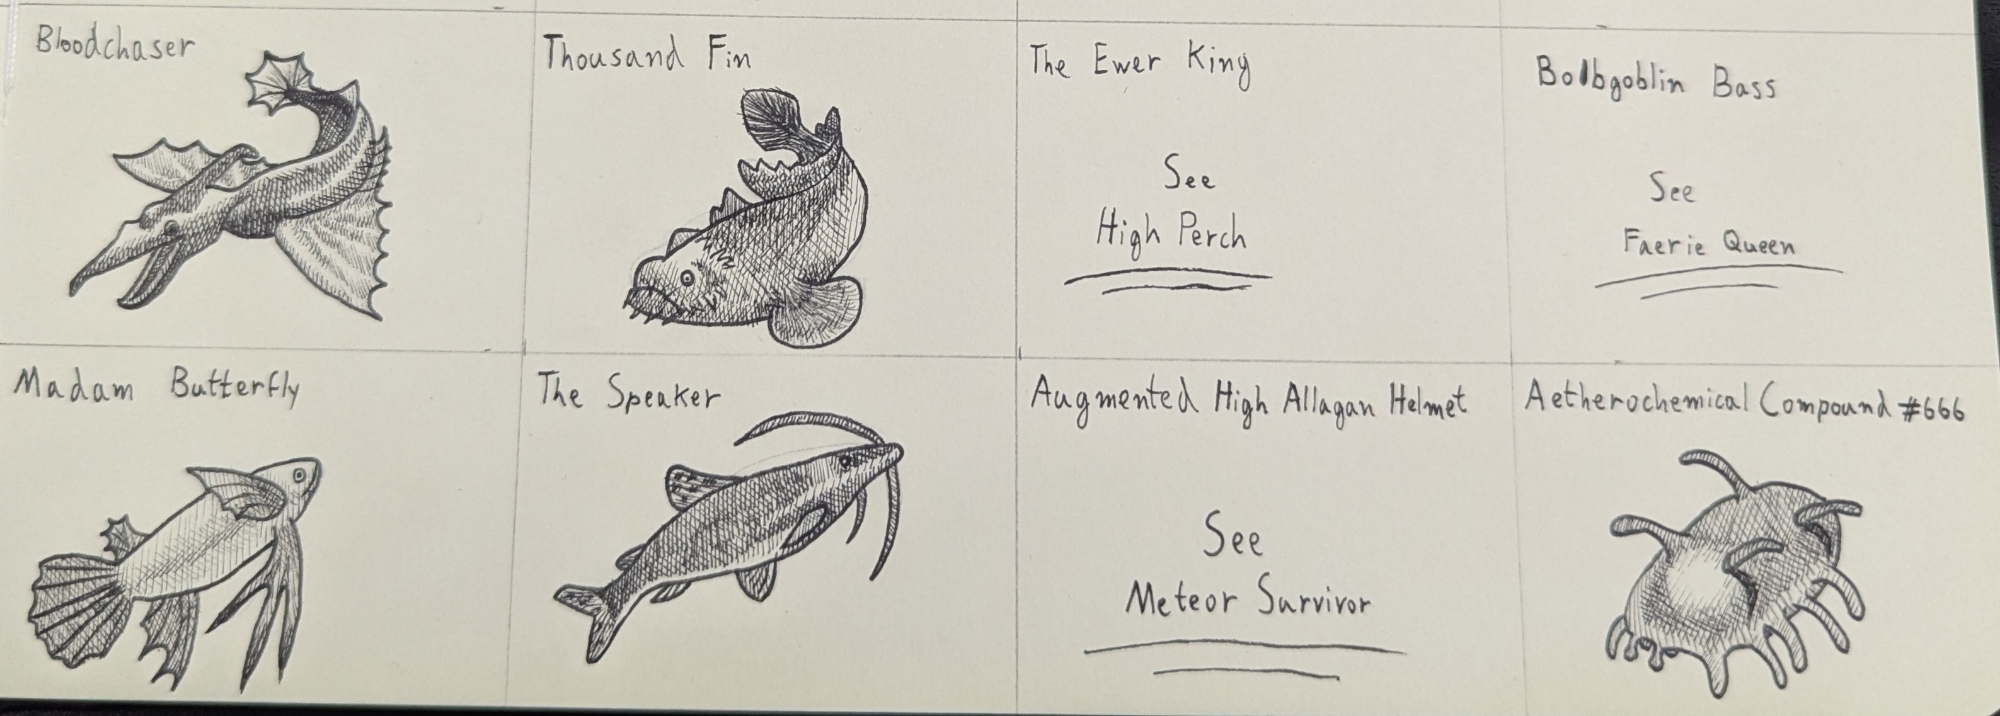 Bloodchaser
Thousand Fin
The Ewer King
See
High Perch
Bolbgoblin Bass
See
Faerie Queen
Madam Butterfly
The Speaker
Augmented High Allagan Helmet
See
Meteor Survivor
Aetherochemical Compound #666